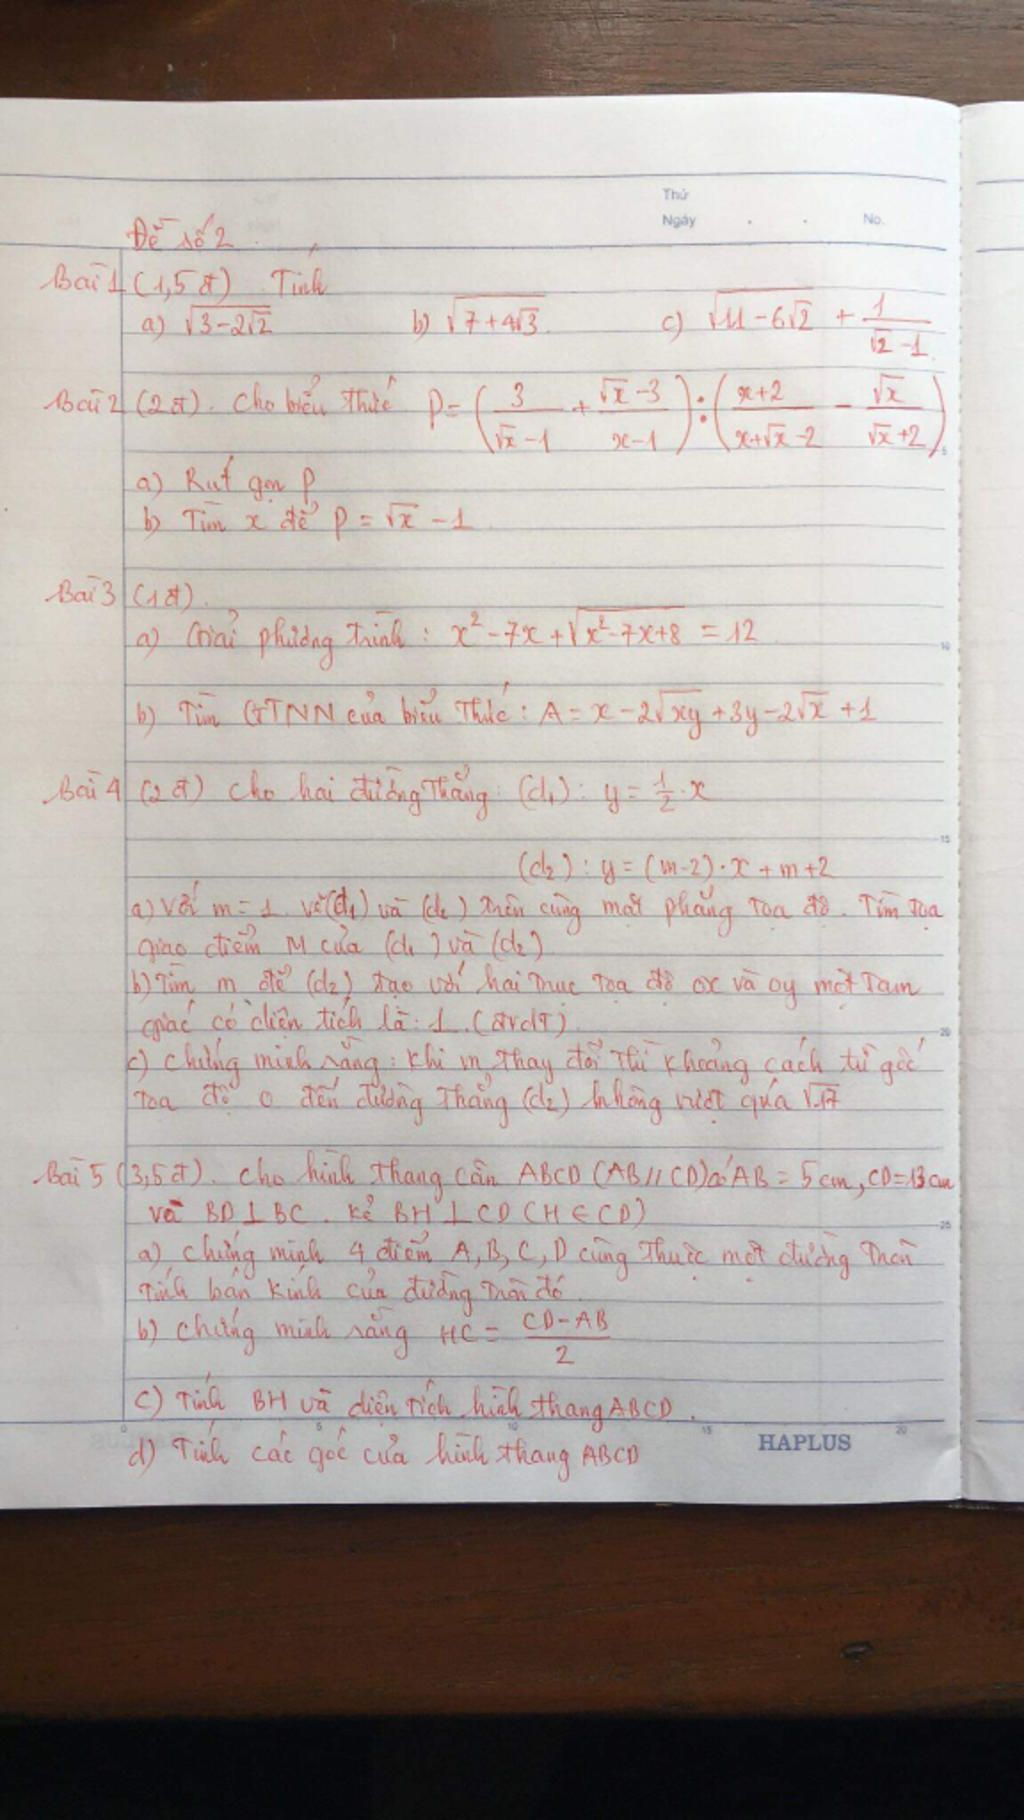 Thứ
Ngày . . No.
Đề số 2.
Bài 1 (1,5đ) Tính
a) √(3-2√2) b) √(7+4√3) c) √(11-6√2) + 1/(√2-1)
Bài 2 (2đ). Cho biểu thức P = (3/(√x-1) + (√x-3)/(x-1)) : ((x+2)/(x+√x-2) - √x/(√x+2))
a) Rút gọn P
b) Tìm x để P = √x - 1
Bài 3 (1đ).
a) Giải phương trình : x² - 7x + √(x²-7x+8) = 12
b) Tìm GTNN của biểu thức : A = x - 2√(xy) + 3y - 2√x + 1
Bài 4 (2đ) Cho hai đường thẳng: (d₁) : y = 1/2 · x
(d₂) : y = (m-2)·x + m+2
a) Với m = 1 vẽ (d₁) và (d₂) trên cùng mặt phẳng tọa độ. Tìm tọa
giao điểm M của (d₁) và (d₂)
b) Tìm m để (d₂) tạo với hai trục tọa độ ox và oy một tam
giác có diện tích là: 1 (đvdt)
c) Chứng minh rằng: khi m thay đổi thì khoảng cách từ gốc
tọa độ O đến đường thẳng (d₂) không vượt quá √17
Bài 5 (3,5đ). Cho hình thang cân ABCD (AB // CD) có AB = 5cm, CD = 13cm
và BD ⊥ BC. Kẻ BH ⊥ CD (H ∈ CD)
a) Chứng minh 4 điểm A, B, C, D cùng thuộc một đường tròn
Tính bán kính của đường tròn đó.
b) Chứng minh rằng HC = (CD - AB)/2
c) Tính BH và diện tích hình thang ABCD.
HAPLUS
d) Tính các góc của hình thang ABCD